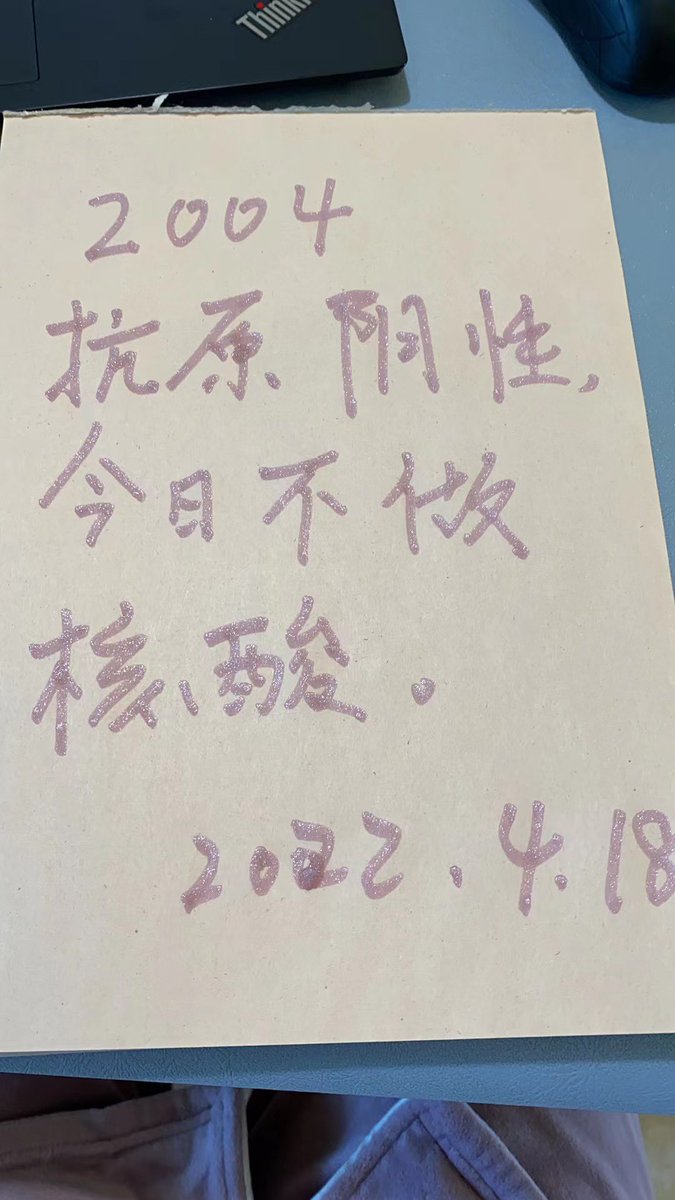 Think
2004
抗原阴性,
今日不做
核酸.
2022.4.18